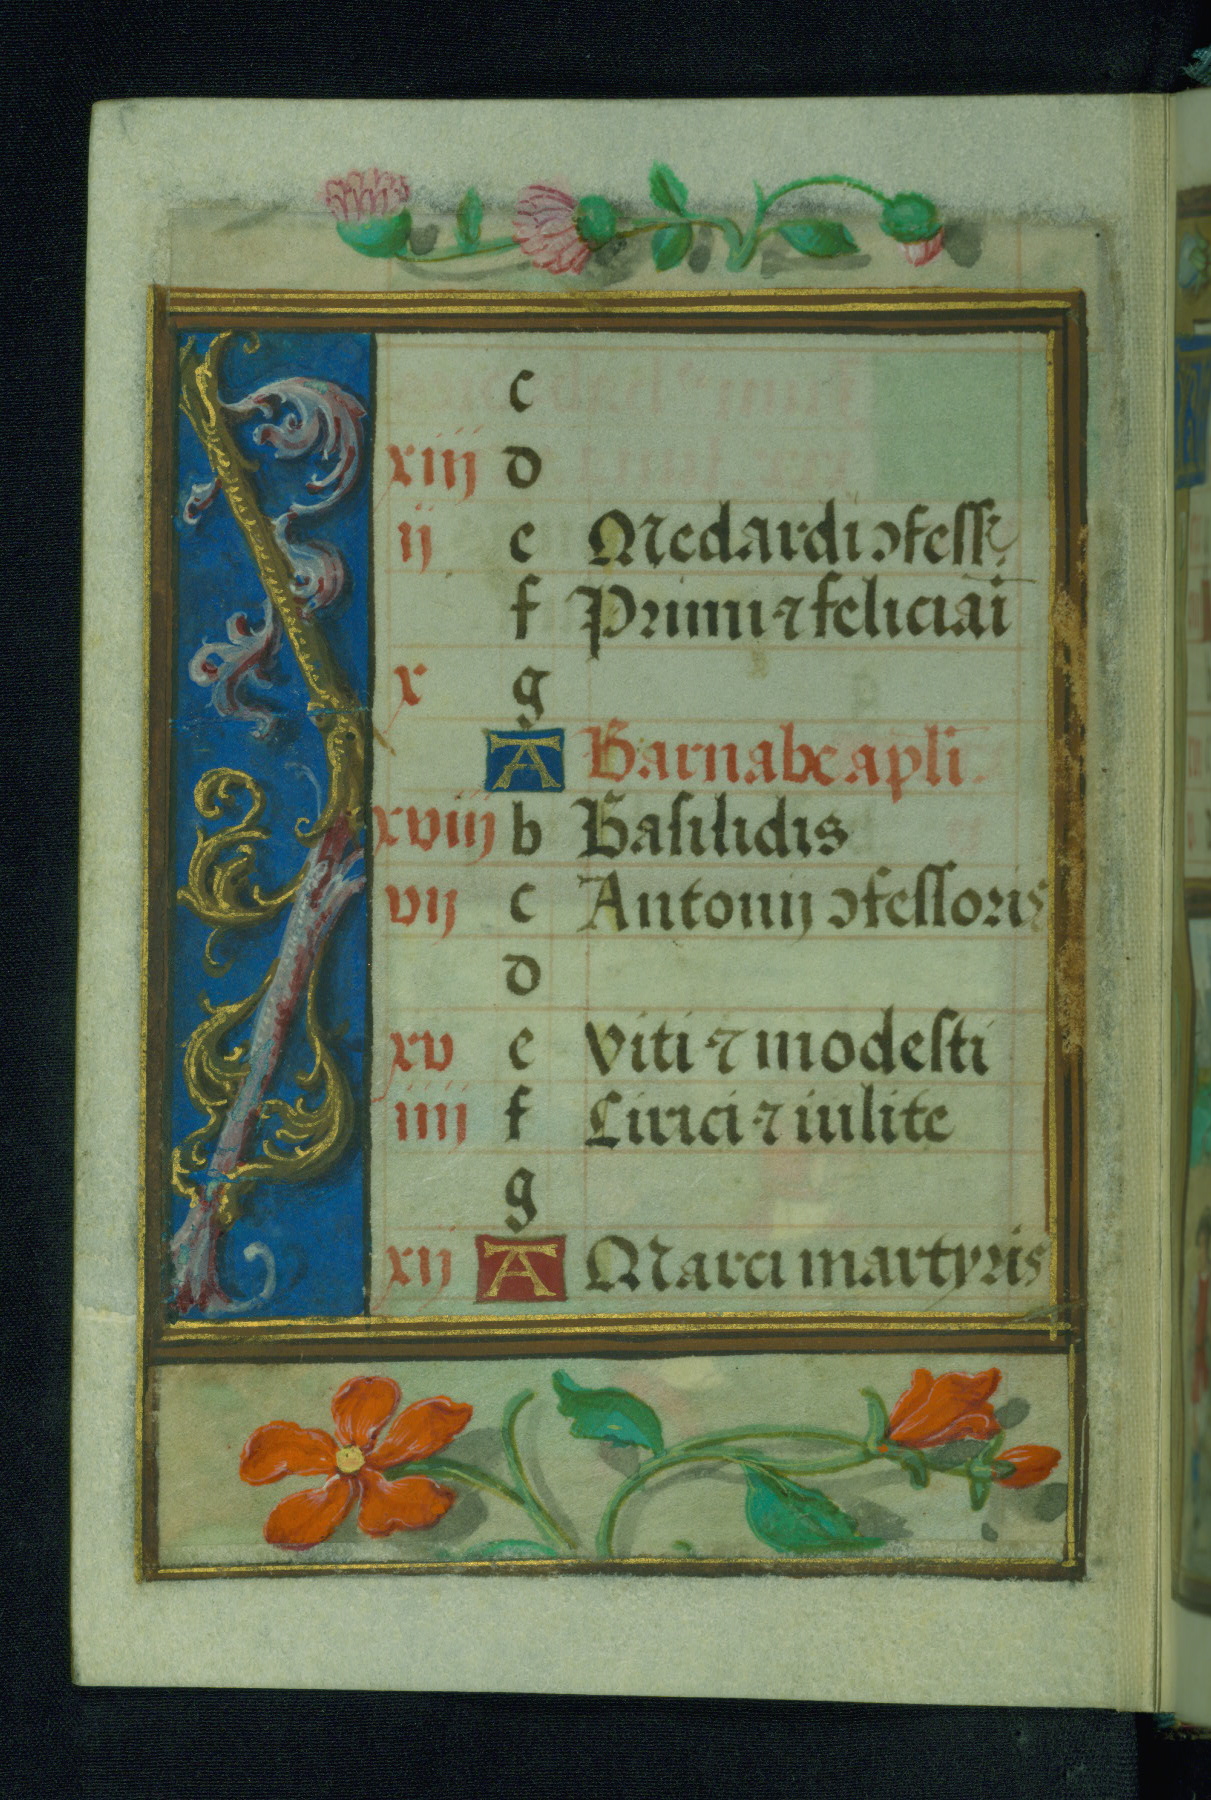 c
xiij d
ij e Medardi ɔfessꝛ
f Primi ⁊ feliciāi
x g
A Barnabe apl̄i
xviij b Basilidis
vij c Antonij ɔfessoris
d
xv e Viti ⁊ modesti
iiij f Cirici ⁊ iulite
g
xij A Marci martyris